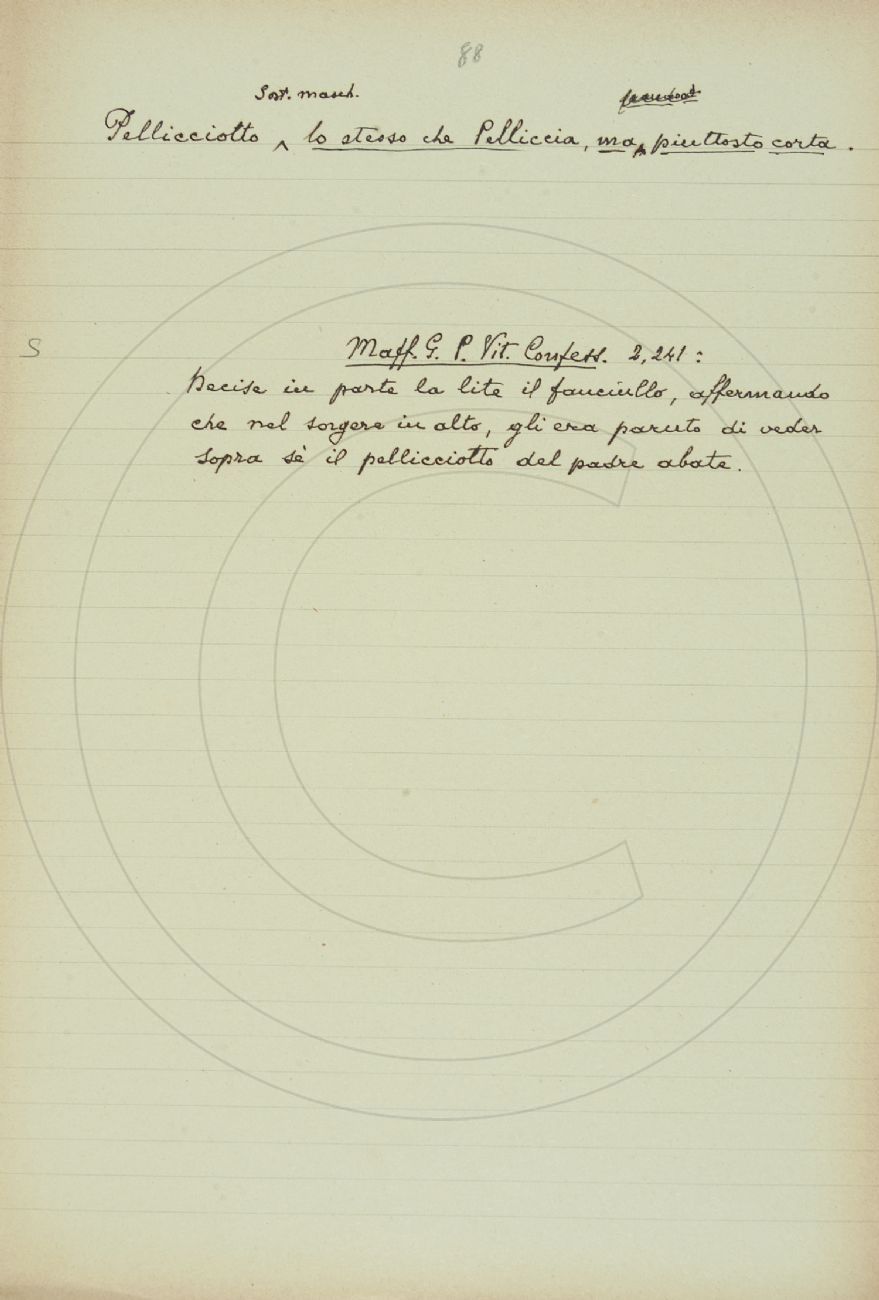 88
Sost. masch.
Pellicciotto ^ lo stesso che Pelliccia, ma piuttosto corta.
S
Maff. G. P. Vit. Confess. 2, 241:
Decise in parte la lite il fanciullo, affermando
che nel sorgere in alto, gli era paruto di veder
sopra sè il pellicciotto del padre abate.